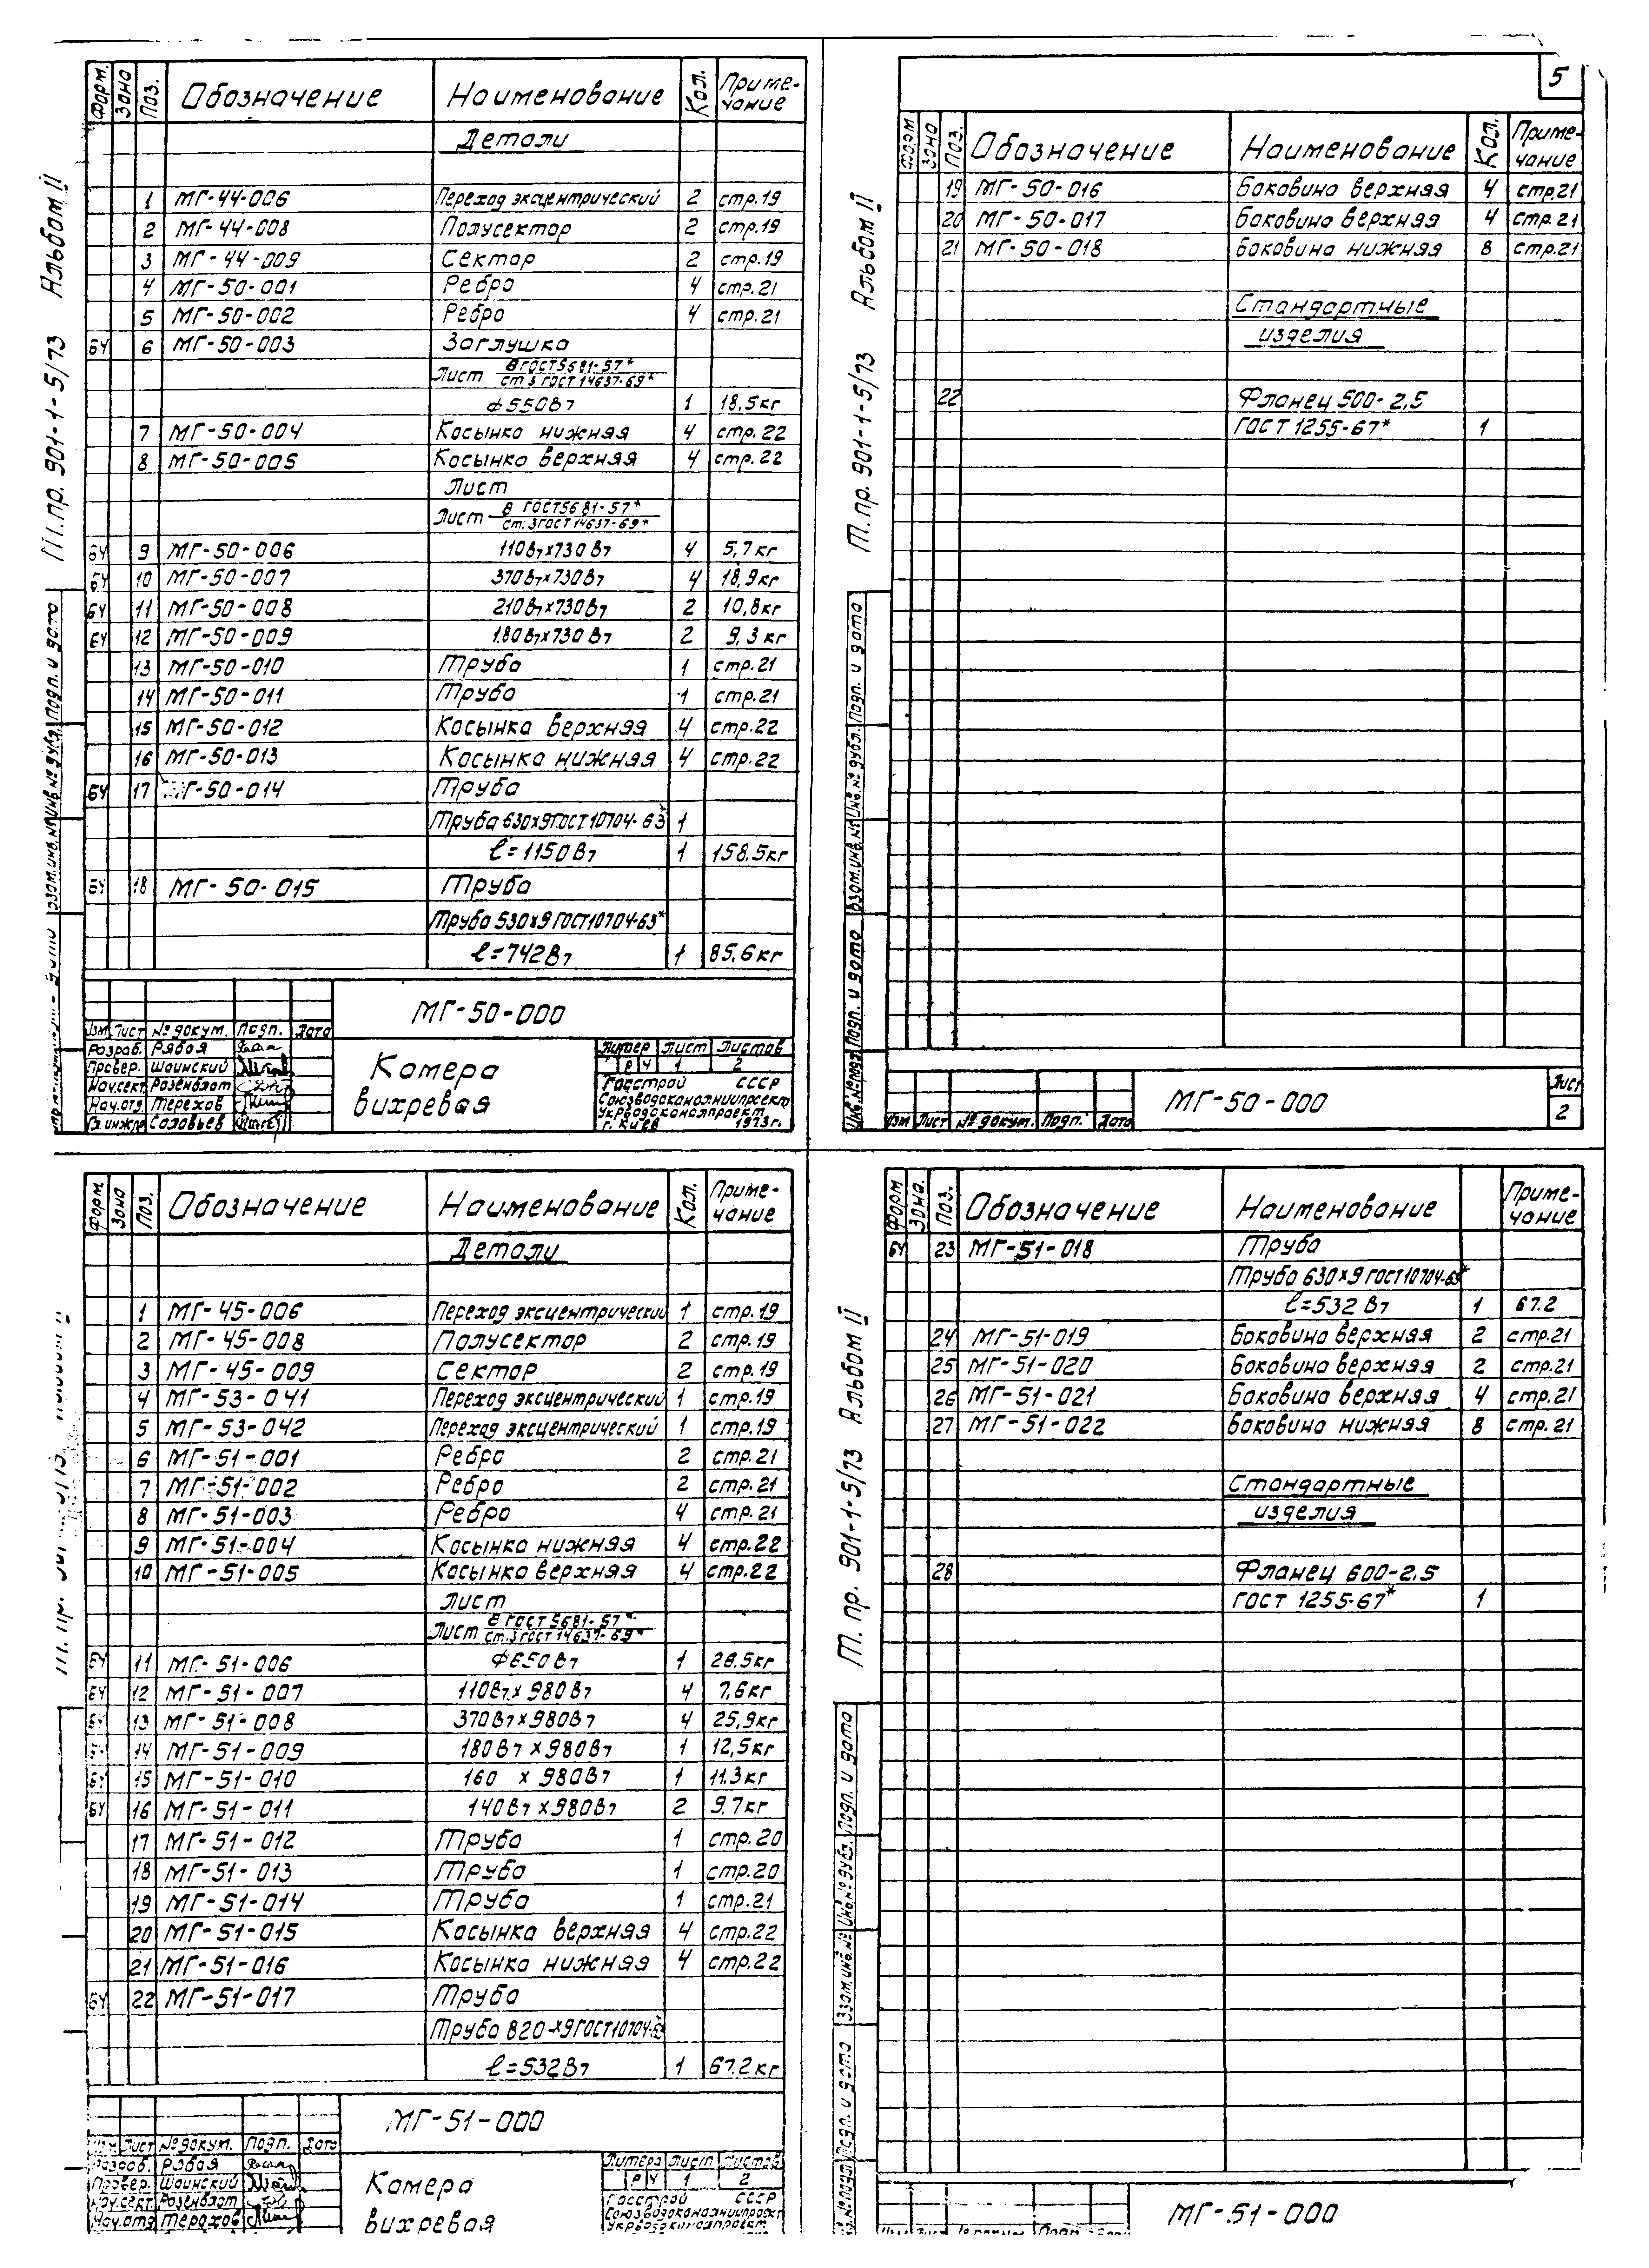 Форм. Зона Поз. Обозначение Наименование Кол. Приме-чание
Детали
1 МГ-44-006 Переход эксцентрический 2 стр.19
2 МГ-44-008 Полусектор 2 стр.19
3 МГ-44-009 Сектор 2 стр.19
4 МГ-50-001 Ребро 4 стр.21
5 МГ-50-002 Ребро 4 стр.21
БЧ 6 МГ-50-003 Заглушка
Лист 8 ГОСТ 5681-57*
ст 3 ГОСТ 14637-69*
ф550В7 1 18,5кг
7 МГ-50-004 Косынка нижняя 4 стр.22
8 МГ-50-005 Косынка верхняя 4 стр.22
Лист
Лист 8 ГОСТ 5681-57*
ст. 3 ГОСТ 14637-69*
БЧ 9 МГ-50-006 110В7х730В7 4 5,7кг
БЧ 10 МГ-50-007 370В7х730В7 4 18,9кг
БЧ 11 МГ-50-008 210В7х730В7 2 10,8кг
БЧ 12 МГ-50-009 180В7х730В7 2 9,3кг
13 МГ-50-010 Труба 1 стр.21
14 МГ-50-011 Труба 1 стр.21
15 МГ-50-012 Косынка верхняя 4 стр.22
16 МГ-50-013 Косынка нижняя 4 стр.22
БЧ 17 МГ-50-014 Труба
Труба 630х9 ГОСТ 10704-63* 1
ℓ=1150В7 1 158,5кг
БЧ 18 МГ-50-015 Труба
Труба 530х9 ГОСТ 10704-63*
ℓ=742В7 1 85,6кг
МГ-50-000
Изм Лист № докум. Подп. Дата
Разраб. Рябая
Провер. Шаинский
Нач.сект. Розенблат
Нач.отд Терехов
Гл.инж.пр Соловьев
Камера
вихревая
Литер Лист Листов
Р Ч 1 2
Госстрой СССР
Союзводоканалниипроект
Укрводоканалпроект
г. Киев 1973г.
Альбом II
901-1-5/73
Подп. и дата
Инв.№ дубл.
Взам.инв.№
5
Форм Зона Поз. Обозначение Наименование Кол. Приме-чание
19 МГ-50-016 Боковина верхняя 4 стр.21
20 МГ-50-017 Боковина верхняя 4 стр.21
21 МГ-50-018 Боковина нижняя 8 стр.21
Стандартные
изделия
22 Фланец 500-2,5
ГОСТ 1255-67* 1
МГ-50-000
Изм Лист № докум. Подп. Дата
Лист
2
Т. пр. 901-1-5/73 Альбом II
Подп. и дата
Инв.№ дубл.
Взам.инв.№
Подп. и дата
Инв.№ подл.
Форм. Зона Поз. Обозначение Наименование Кол. Приме-чание
Детали
1 МГ-45-006 Переход эксцентрический 1 стр.19
2 МГ-45-008 Полусектор 2 стр.19
3 МГ-45-009 Сектор 2 стр.19
4 МГ-53-041 Переход эксцентрический 1 стр.19
5 МГ-53-042 Переход эксцентрический 1 стр.19
6 МГ-51-001 Ребро 2 стр.21
7 МГ-51-002 Ребро 2 стр.21
8 МГ-51-003 Ребро 4 стр.21
9 МГ-51-004 Косынка нижняя 4 стр.22
10 МГ-51-005 Косынка верхняя 4 стр.22
Лист
Лист 8 ГОСТ 5681-57*
ст.3 ГОСТ 14637-69*
БЧ 11 МГ-51-006 Ф650В7 1 26.5кг
БЧ 12 МГ-51-007 110В7х980В7 4 7,6кг
БЧ 13 МГ-51-008 370В7х980В7 4 25,9кг
БЧ 14 МГ-51-009 180В7х980В7 1 12,5кг
БЧ 15 МГ-51-010 160 х 980В7 1 11.3кг
БЧ 16 МГ-51-011 140В7х980В7 2 9.7кг
17 МГ-51-012 Труба 1 стр.20
18 МГ-51-013 Труба 1 стр.20
19 МГ-51-014 Труба 1 стр.21
20 МГ-51-015 Косынка верхняя 4 стр.22
21 МГ-51-016 Косынка нижняя 4 стр.22
БЧ 22 МГ-51-017 Труба
Труба 820х9 ГОСТ 10704-63
ℓ=532В7 1 67.2кг
МГ-51-000
Лист № докум. Подп. Дата
Разраб. Рябая
Провер. Шаинский
Нач.сект Розенблат
Нач.отд Терехов
Камера
вихревая
Литера Лист Листов
Р Ч 1 2
Госстрой СССР
Союзводоканалниипроект
Укрводоканалпроект
Форм Зона. Поз. Обозначение Наименование Приме-чание
БЧ 23 МГ-51-018 Труба
Труба 630х9 ГОСТ 10704-63*
ℓ=532В7 1 67.2
24 МГ-51-019 Боковина верхняя 2 стр.21
25 МГ-51-020 Боковина верхняя 2 стр.21
26 МГ-51-021 Боковина верхняя 4 стр.21
27 МГ-51-022 Боковина нижняя 8 стр.21
Стандартные
изделия
28 Фланец 600-2,5
ГОСТ 1255-67* 1
МГ-51-000
Т. пр. 901-1-5/73 Альбом II
Подп. и дата
Инв.№ дубл.
Взам.инв.№
Подп. и дата